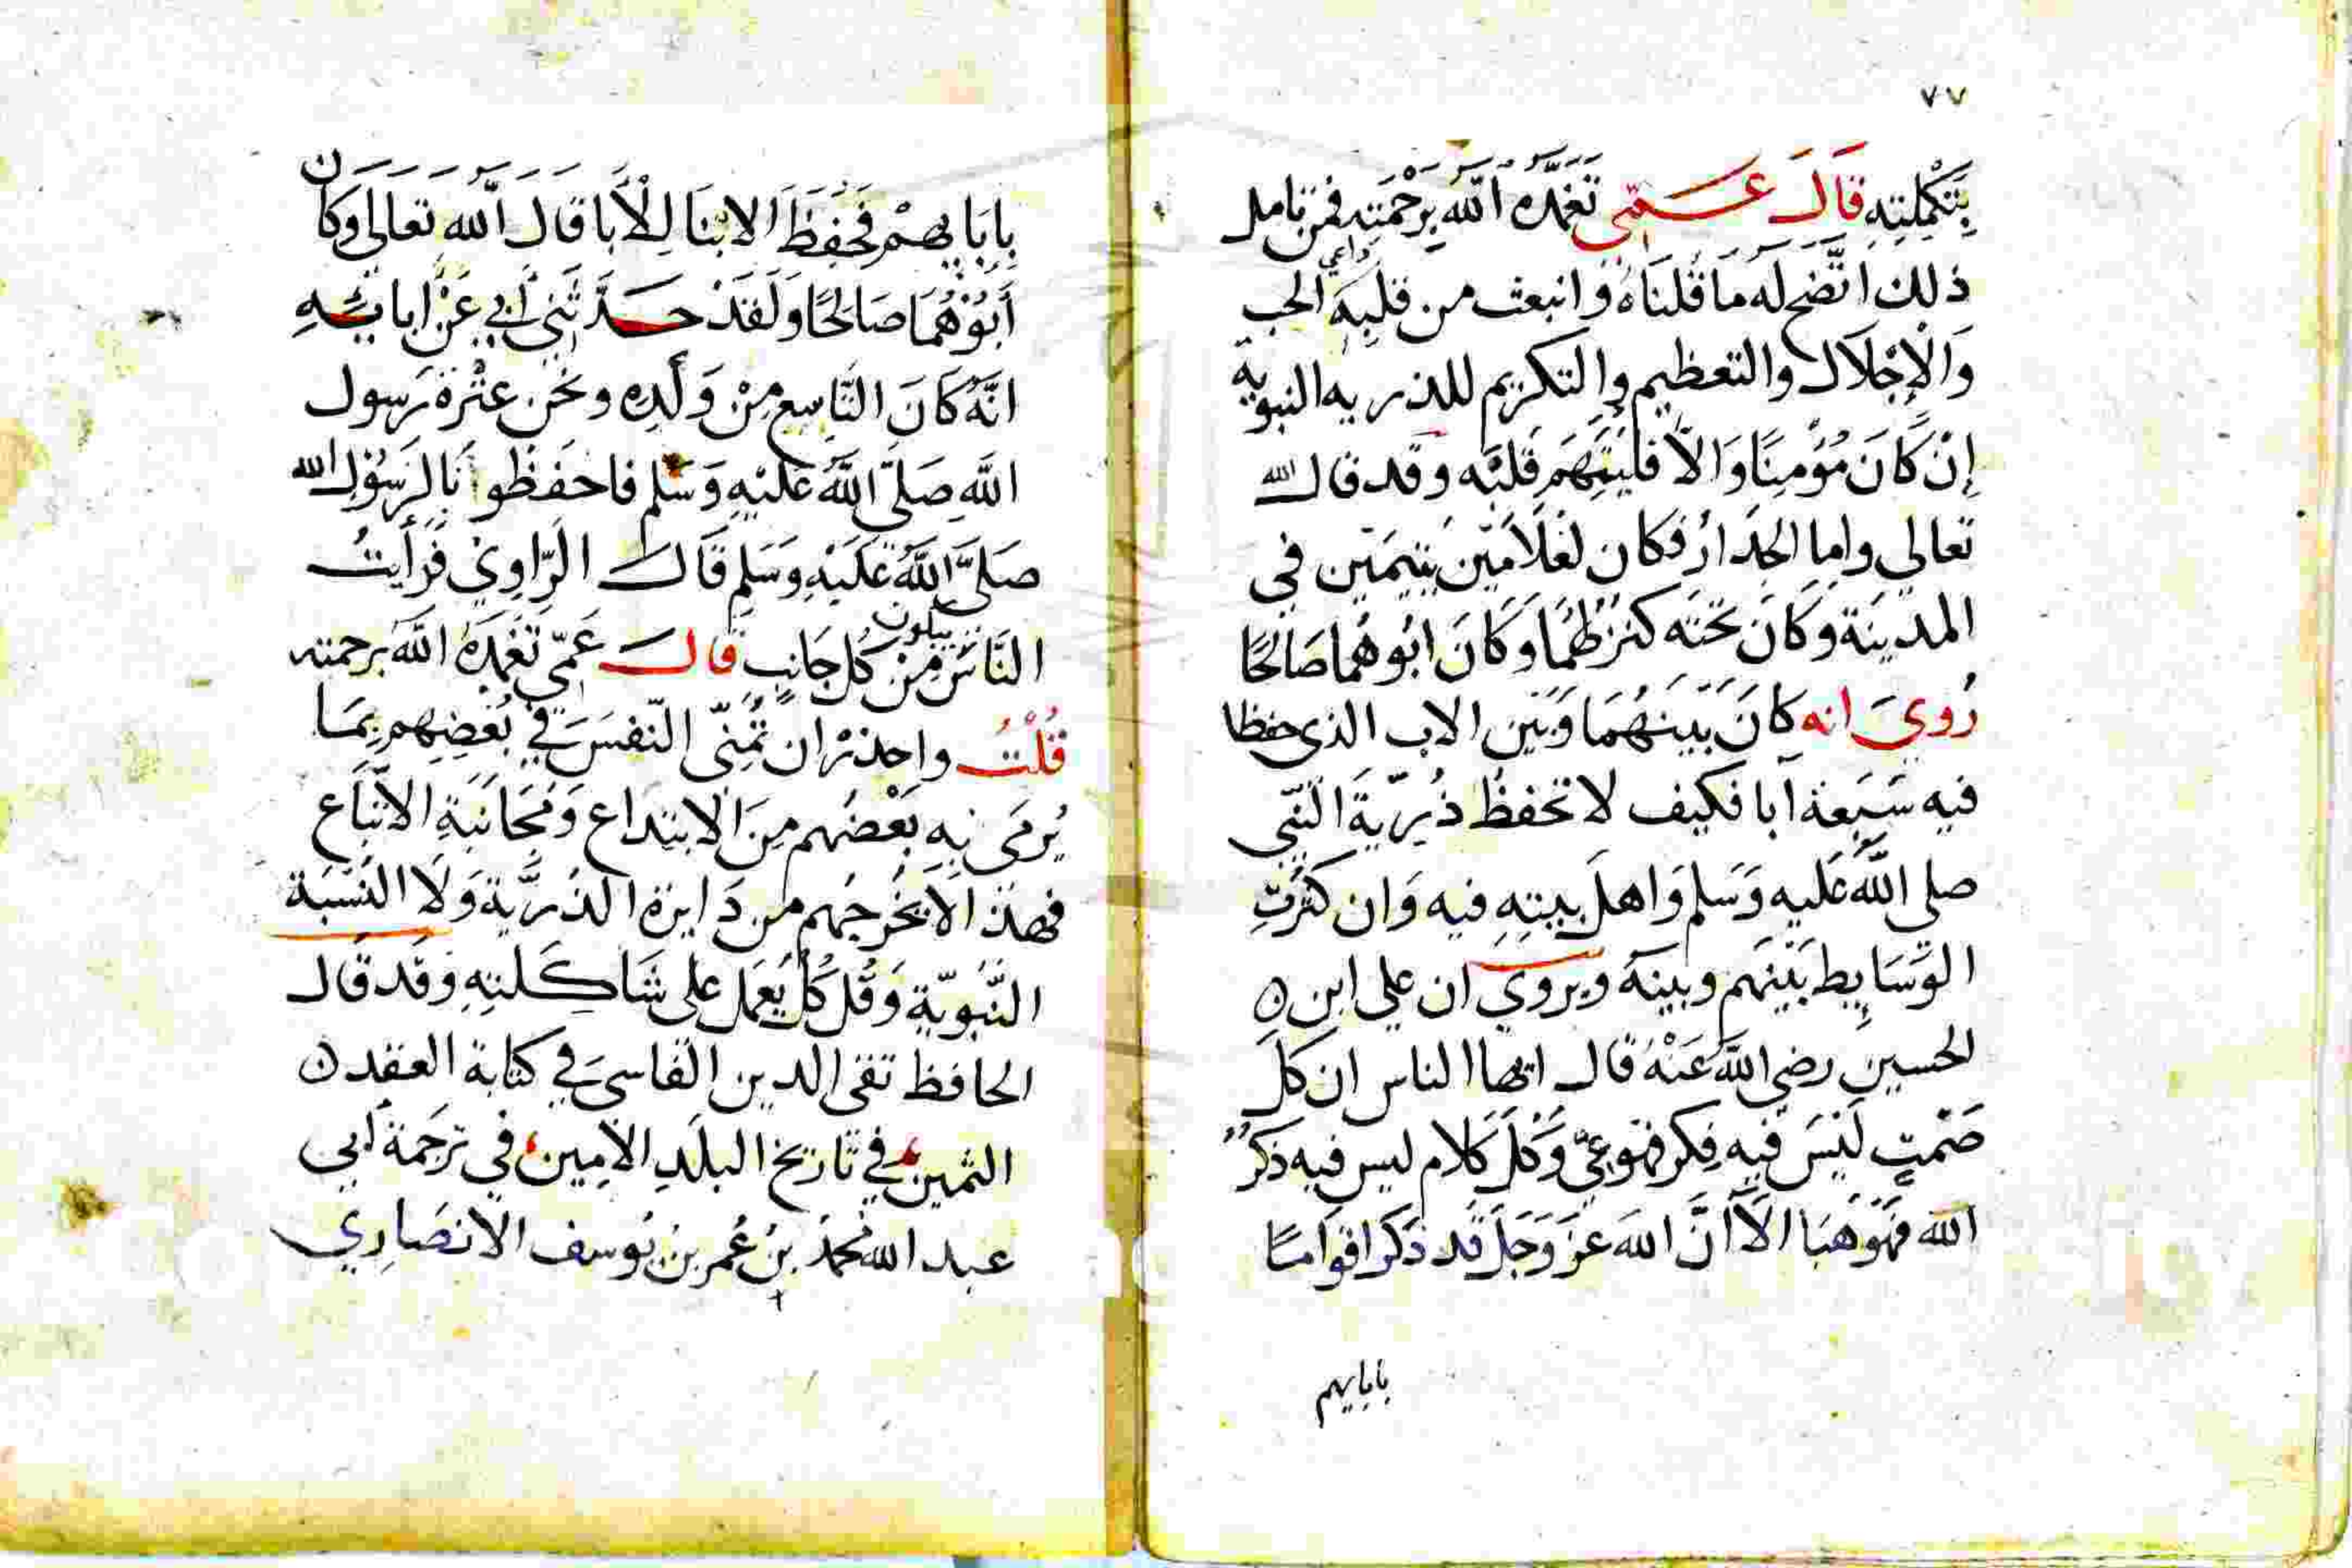 ٧٧
بِتَكْمِلَتِهِ قَالَ عَمّي تَغَمَّدَهُ اللَّه بِرَحْمَتِهِ فمن تامل
ذلك اتَّضح لَه مَا قُلنَاهُ وَانبعث من قلبِهِ داعي الحب
وَالْإِجْلَال والتعظيم والتكريم للذريه النبوية
إِنْ كَانَ مُؤْمِنًا وَالَّا فليَتَّهِم قَلبَه وقد قال الله
تعالي واما الجِدَارُ فكان لغُلَامَين يَتِيمَين في
المدينَة وكَانَ تحتَه كنزٌ لهُمَا وَكَانَ ابُوهُمَا صَالحًا
رُويَ انه كَانَ بَينَهُمَا وَبَين الاب الذي حفظا
فيه سَبعَة آبا فكيف لا تحفظُ ذُرِّيَةَ النَّبي
صلي اللَّه عَليه وَسَلم وَاهل بيتِهِ فيه وَان كثرتِ
الوَسَايِط بَينَهم وبينَه ويروي ان علي ابن
الحسين رضي اللَّه عَنْهُ قال ايها الناس ان كلَ
صَمْتٍ لَيْسَ فيه فِكر فهَو عِيّ وَكلَ كَلام ليس فيه ذكرُ
الله فهَوَ هَبَا الاَ انَّ اللهَ عزَ وَجَلَ قَد ذكَرَ اقوَامًا
بابايهم
بِابَايِهِمْ فَحَفِظَ الابْنَا لِلْأَبَا قَالَ اَللَّه تَعَالَى وَكَان
أَبُوْهُمَا صَالحًا وَلَقَدْ حَدَّثَنِي أَبِي عَنْ ابَائِهِ
انَّهُ كَانَ التَّاسِع مِنْ وَلَدِهِ ونحَن عتْرَة رَسول
اللَّهِ صَلَّى اللَّهُ عَليْهِ وَسَلم فاحفَظُوْنَا لِرَسُوْلِ الله
صَلَّى اللَّهُ عَلَيْهِ وَسَلم قَالَ الرَّاوِيْ فَرَأَيتُ
النَّاسَ يبكون مِن كُل جَانِبٍ قَالَ عَمِّي تَغَمَدَهُ اللَّه برحمته
قُلْتُ واحذرْ ان تُمَنِّي النَّفسَ في بُغضِهِم بِمَا
يُرمَى بِهِ بَعْضُهم مِنَ الابتداع وَمُجَانَبَةِ الاتّبَاع
فهذَا لَا يُخْرِجُهم من دَايرَة الذُرِّيَّة وَلَا النِّسْبَة
النَّبَوِيّةِ وَقُل كُلٌ يَعْمَل على شَاكِلَتِهِ وَقَد قَال
الحافظ تقي الدين الفَاسيَ في كتابة العقد
الثمين في تاريخ البلَدِ الاَمِين في ترجَمة أبي
عبد الله محمدُ بنُ عُمر بن يُوسف الانصَارِي